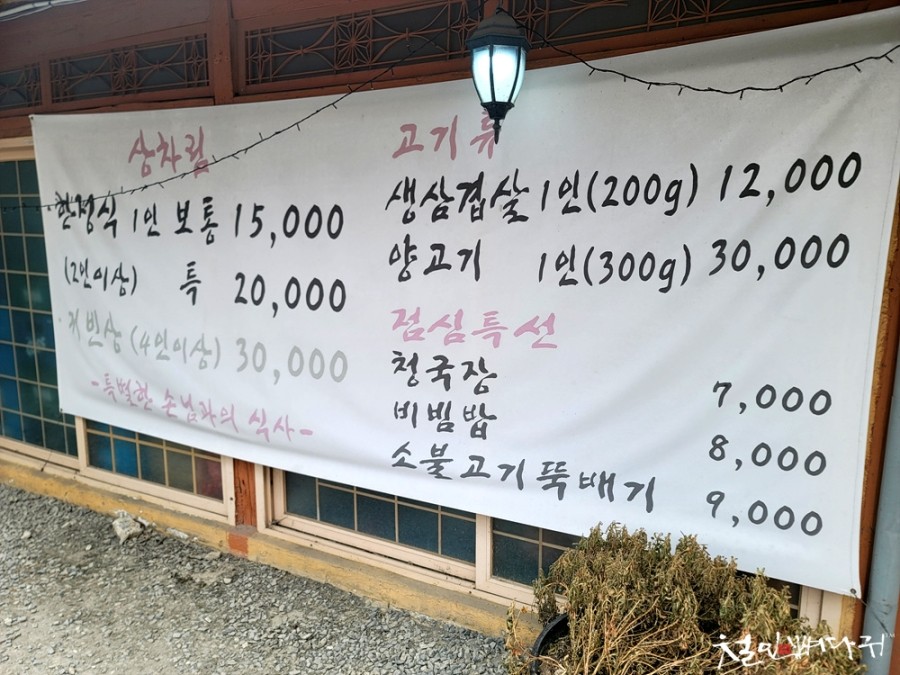 상차림
한정식 1인 보통 15,000
(2인이상) 특 20,000
귀빈상 (4인이상) 30,000
-특별한 손님과의 식사-
고기류
생삼겹살 1인(200g) 12,000
양고기 1인(300g) 30,000
점심특선
청국장 7,000
비빔밥 8,000
소불고기뚝배기 9,000
철인뼈다귀